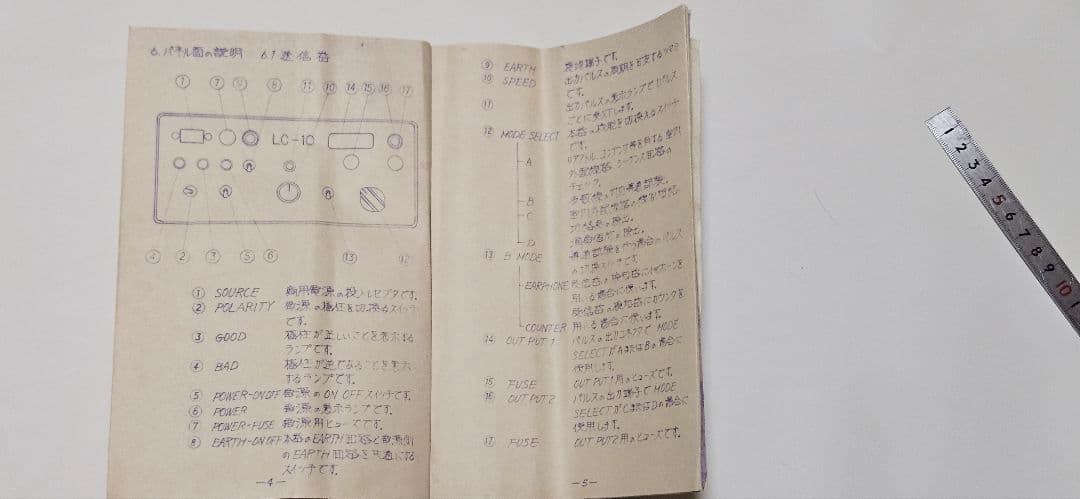 6. パネル面の説明 6.1 送信器
① ⑦ ⑧ ⑥ ⑪ ⑩ ⑭ ⑮ ⑯ ⑰
LC-10
④ ② ③ ⑤ ⑥ ⑬ ⑫
① SOURCE 商用電源の投入レセプタです。
② POLARITY 電源の極性を切換るスイッチ
です。
③ GOOD 極性が正しいことを表示する
ランプです。
④ BAD 極性が逆であることを表示
するランプです。
⑤ POWER-ON OFF 電源のON OFFスイッチです。
⑥ POWER 電源の表示ランプです。
⑦ POWER-FUSE 電源用ヒューズです。
⑧ EARTH-ON OFF 本器のEARTH回路と電源側
のEARTH回路を共通にする
スイッチです。
-4-
⑨ EARTH 接地端子です。
⑩ SPEED 出力パルスの周期を可変するツマミ
です。
⑪ 出力パルスの表示ランプで1パルス
ごとに点灯します。
⑫ MODE SELECT 本器の機能を切換えるスイッチ
です。
A リアクトル、コンデンサ等を有する
外配線路、シーケンス回路の
チェック。
B
C
D
⑬ B MODE
EARPHONE 受信器の検知器にイヤホーンを
用いる場合に使います。
COUNTER 受信器の検知器にカウンタを
用いる場合に使います。
⑭ OUT PUT 1 パルスの出力コネクタで MODE
SELECTがAまたはBの場合に
使用します。
⑮ FUSE OUT PUT1用のヒューズです。
⑯ OUT PUT2 パルスの出力端子で MODE
SELECTがCまたはDの場合に
使用します。
⑰ FUSE OUT PUT2用のヒューズです。
-5-
1 2 3 4 5 6 7 8 9 10 1